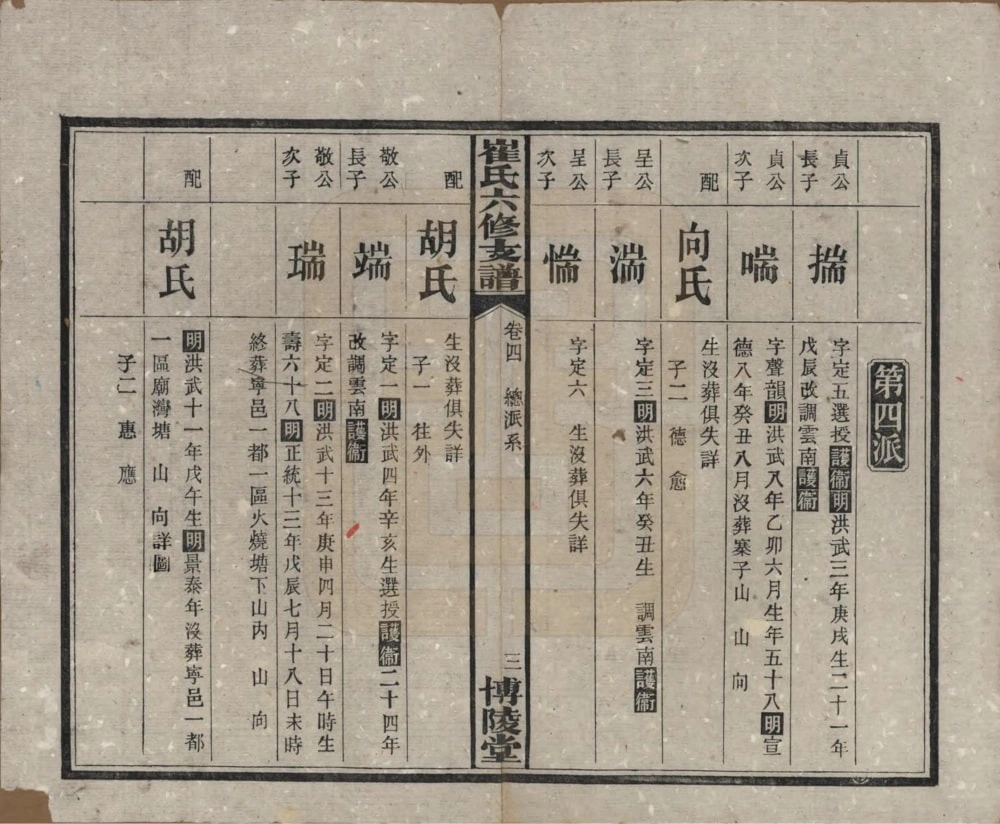 第四派
貞公
長子
揣
字定五選授護衞明洪武三年庚戌生二十一年
戊辰改調雲南護衞
貞公
次子
喘
字聲韻明洪武八年乙卯六月生年五十八明宣
德八年癸丑八月沒葬寨子山 山 向
配
向氏
生沒葬俱失詳
子二 德 愈
呈公
長子
湍
字定三明洪武六年癸丑生 調雲南護衞
呈公
次子
惴
字定六 生沒葬俱失詳
崔氏六修支譜
卷四 總派系
三
博陵堂
配
胡氏
生沒葬俱失詳
子一 往外
敬公
長子
端
字定一明洪武四年辛亥生選授護衞二十四年
改調雲南護衞
敬公
次子
瑞
字定二明洪武十三年庚申四月二十日午時生
壽六十八明正統十三年戊辰七月十八日未時
終葬寧邑一都一區火燒塘下山內 山 向
配
胡氏
明洪武十一年戊午生明景泰年沒葬寧邑一都
一區廟灣塘 山 向詳圖
子二 惠 應